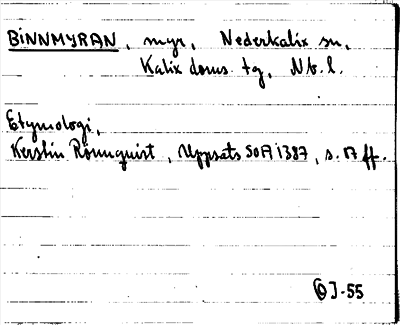 BINNMYRAN, myr, Nederkalix sn,
Kalix doms. tg, Nb. l.
Etymologi,
Kerstin Rönnquist, Uppsats SOFI 1387, s. 17 ff.
J-55